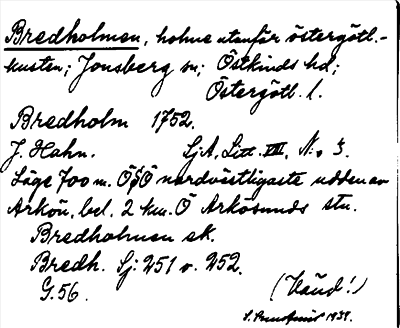 Bredholmen, holme utanför östergötl.-
kusten; Jonsberg sn; Östkinds hd;
Östergötl. l.
Bredholm 1752.
J. Hahn. SjA, Litt. VIII, N:o 3.
Läge 700 m. ÖSÖ nordvästligaste udden av
Arkön, bel. 2 km. Ö Arkösunds stn.
Bredholmen ek.
Bredh. Sj: 251 o. 252.
G.56. (Vänd!)
1939.